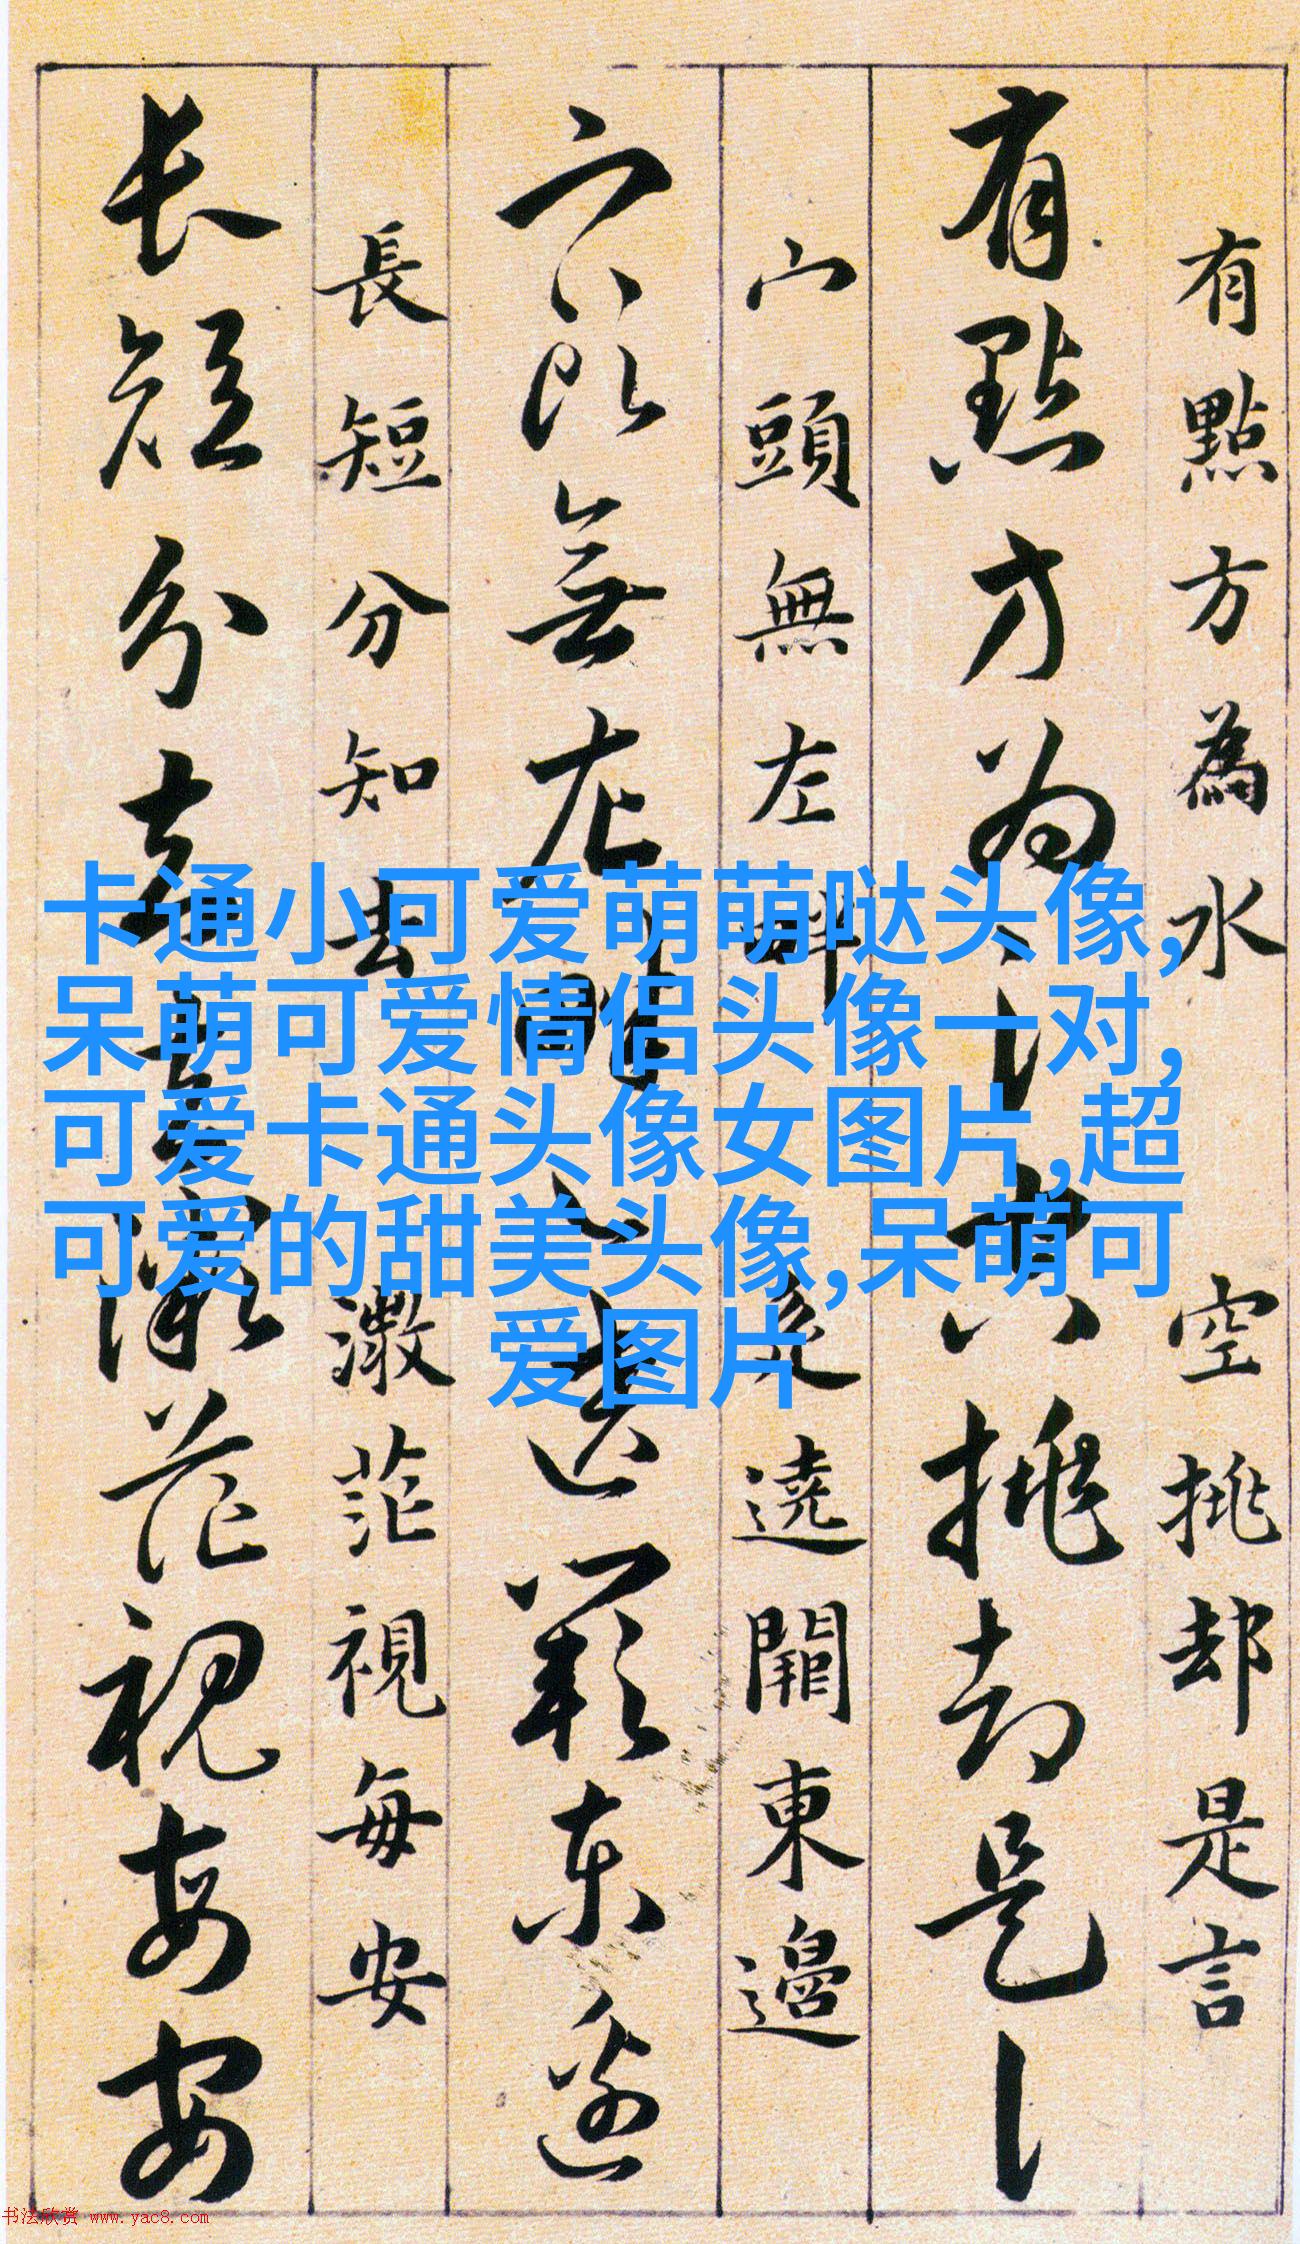 有點方為水
空挑却是言
有點方为氵
六挑却是讠
宀頭無左畔
遶闕東邊
宀頭無左畔
辶遶闕東邊
長短分知去
微茫視每安
长短分知去
微茫視每安
卡通小可爱萌萌哒头像,
呆萌可爱情侣头像一对,
可爱卡通头像女图片,超
可爱的甜美头像,呆萌可
爱图片
书法欣赏 www.yac8.com